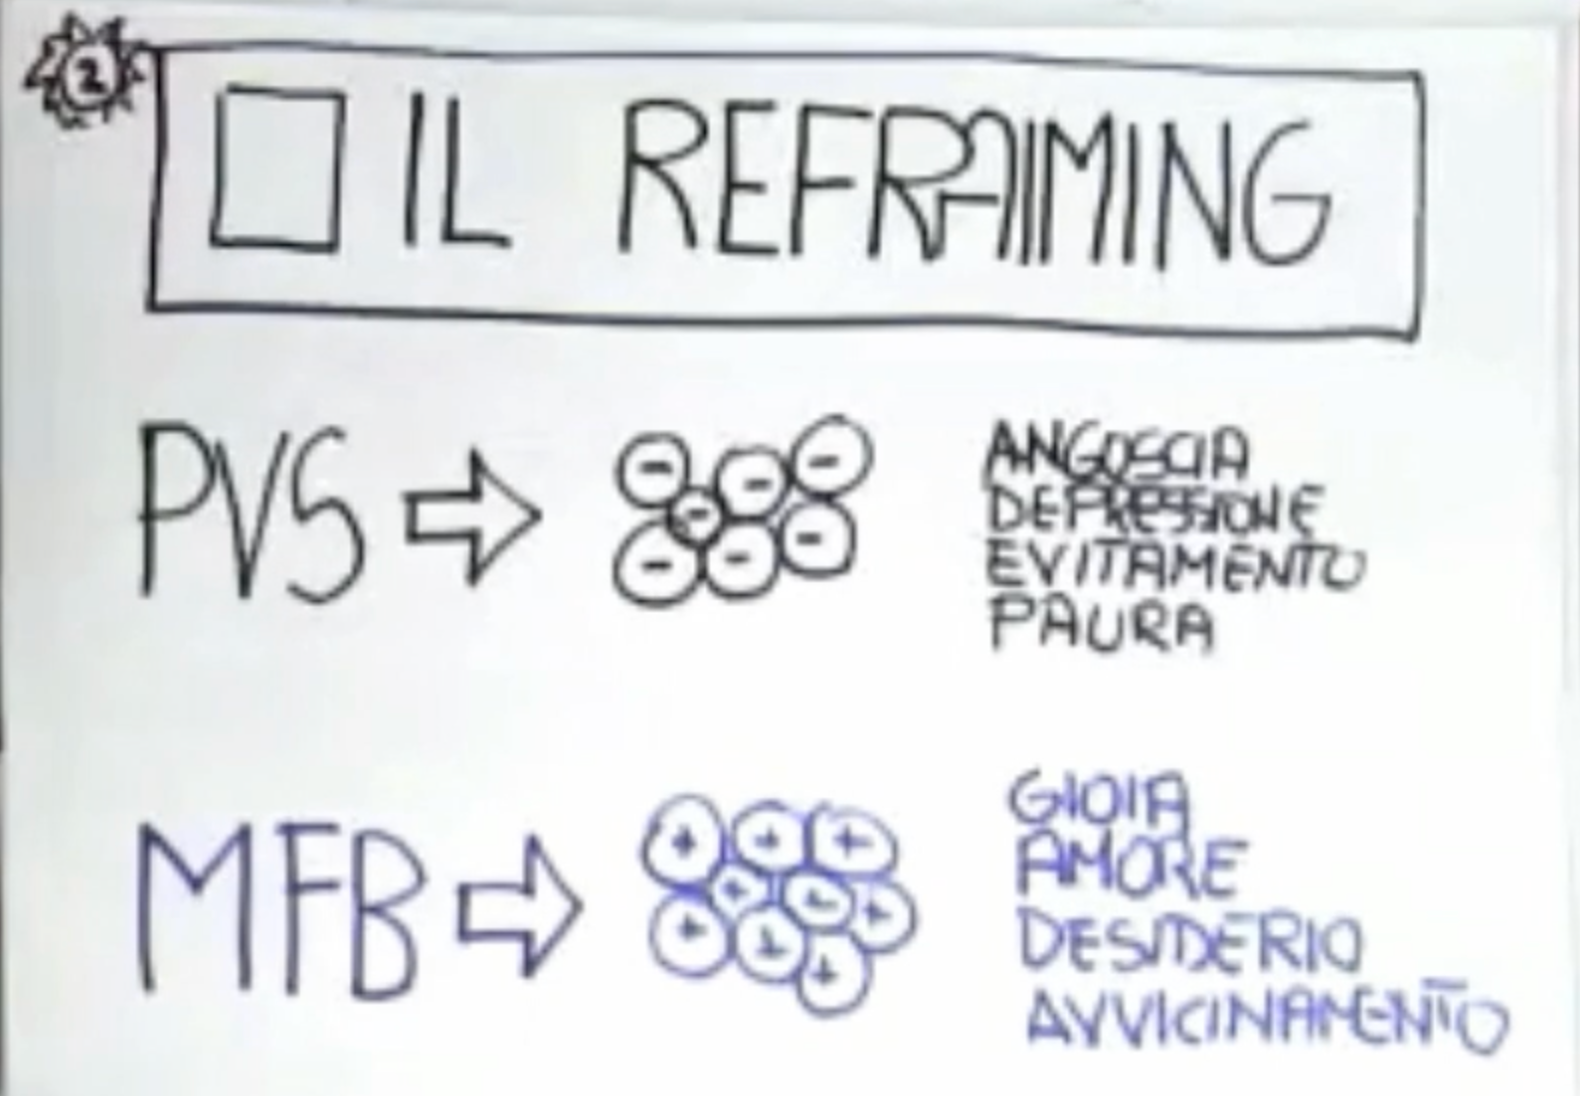 2
IL REFRAIMING
PVS
ANGOSCIA
DEPRESSIONE
EVITAMENTO
PAURA
MFB
GIOIA
AMORE
DESIDERIO
AVVICINAMENTO